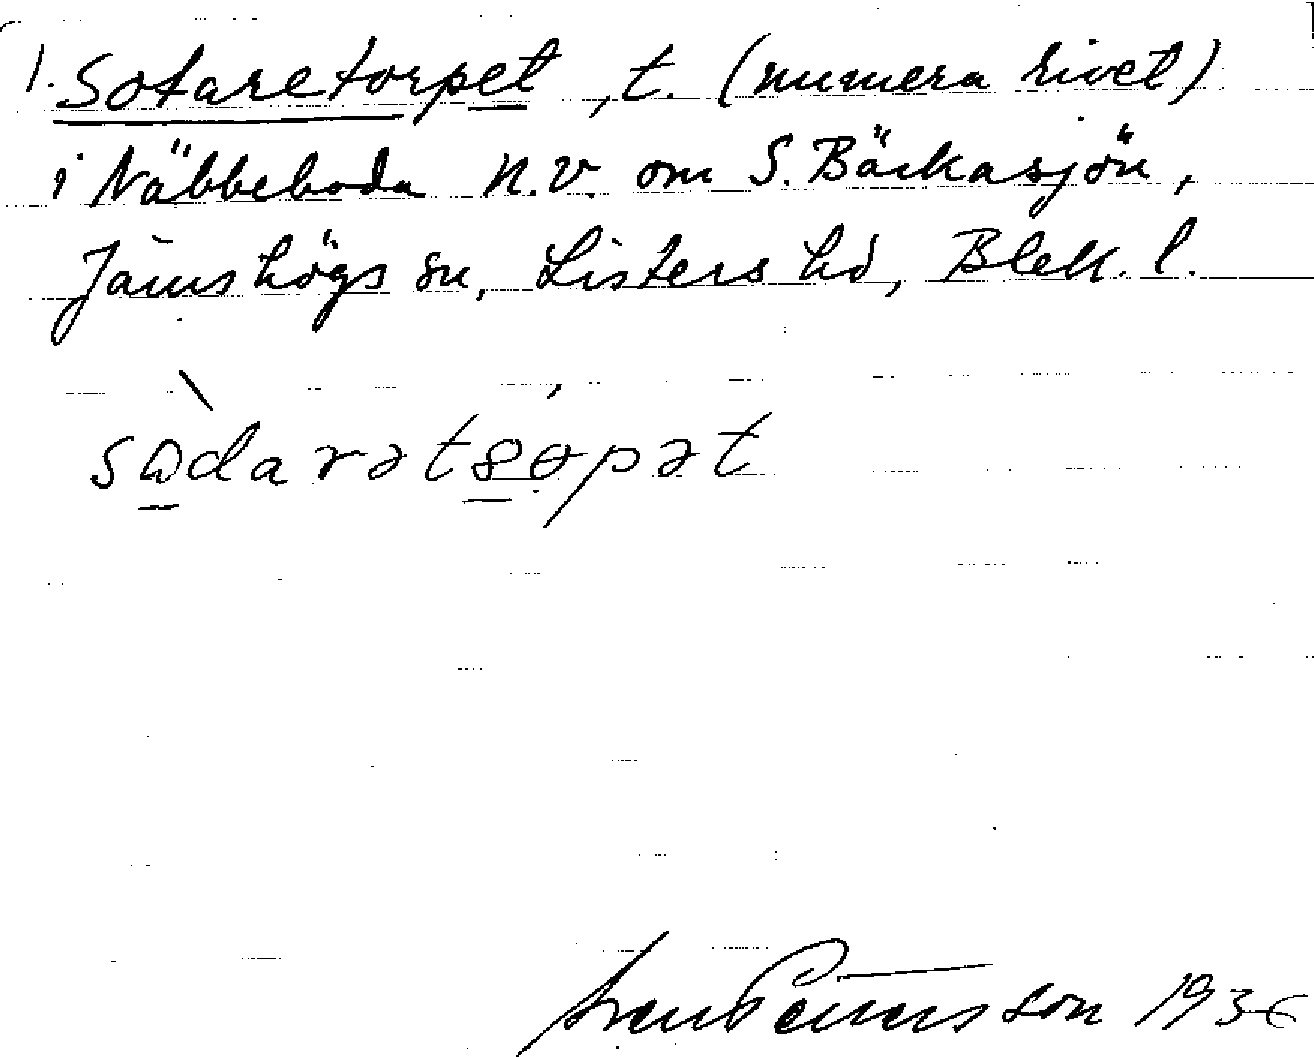 1. Sotaretorpet, t. (numera rivet)
i Näbbeboda n.v. om S. Bäckasjön,
Jämshögs sn, Listers hd, Blek. l.
sɷdarətsɵpət
Sven Petersson 1936